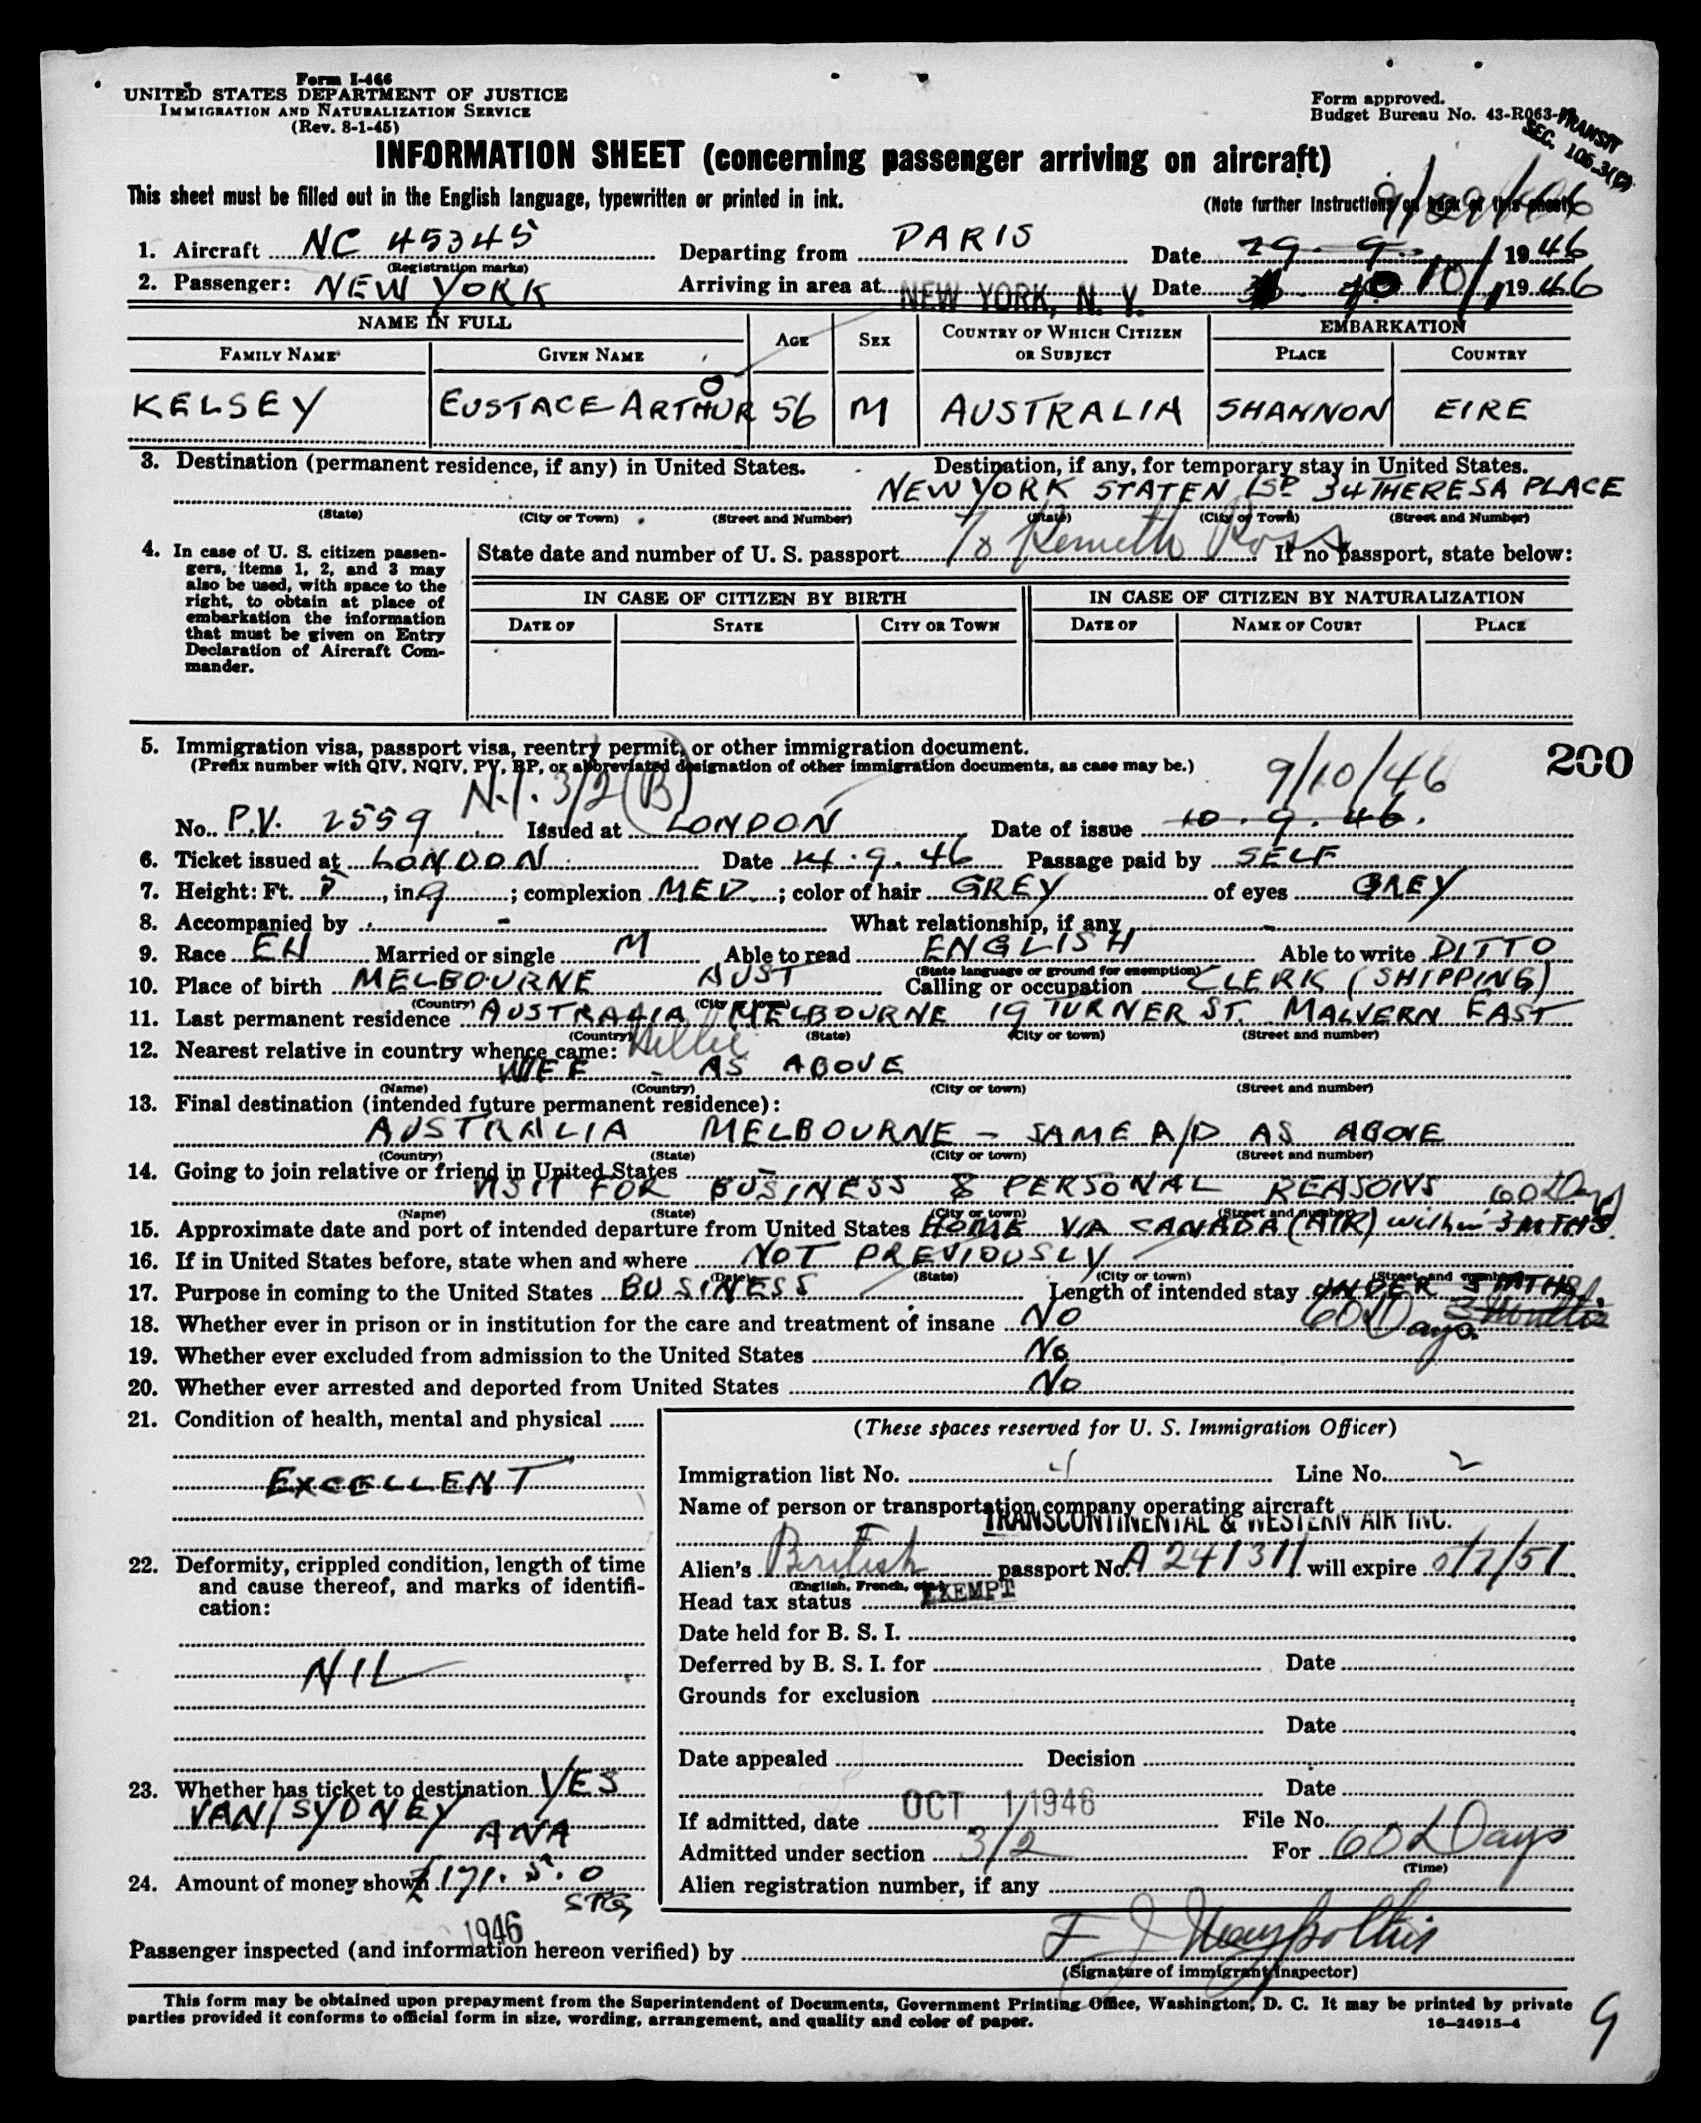 Form I-466
UNITED STATES DEPARTMENT OF JUSTICE
IMMIGRATION AND NATURALIZATION SERVICE
(Rev. 8-1-45)
Form approved.
Budget Bureau No. 43-R063-
TRANSIT
SEC. 105-3(C)
INFORMATION SHEET (concerning passenger arriving on aircraft)
This sheet must be filled out in the English language, typewritten or printed in ink.
(Note further instructions on back of this sheet)
9/29/46
1. Aircraft NC 45345 Departing from PARIS Date 29 - 9 - 1946
(Registration marks)
2. Passenger: NEW YORK Arriving in area at NEW YORK, N. Y. Date 10/1 1946
NAME IN FULL
AGE SEX COUNTRY OF WHICH CITIZEN OR SUBJECT EMBARKATION
FAMILY NAME GIVEN NAME PLACE COUNTRY
KELSEY EUSTACE ARTHUR 56 M AUSTRALIA SHANNON EIRE
3. Destination (permanent residence, if any) in United States. Destination, if any, for temporary stay in United States.
NEW YORK STATEN ISD 34 THERESA PLACE
(State) (City or Town) (Street and Number) (State) (City or Town) (Street and Number)
4. In case of U. S. citizen passengers, items 1, 2, and 3 may also be used, with space to the right, to obtain at place of embarkation the information that must be given on Entry Declaration of Aircraft Commander.
State date and number of U. S. passport % Kenneth Ross If no passport, state below:
IN CASE OF CITIZEN BY BIRTH IN CASE OF CITIZEN BY NATURALIZATION
DATE OF STATE CITY OR TOWN DATE OF NAME OF COURT PLACE
5. Immigration visa, passport visa, reentry permit, or other immigration document.
(Prefix number with QIV, NQIV, PV, RP, or abbreviated designation of other immigration documents, as case may be.)
200
N.I. 3/2(B) 9/10/46
No. P.V. 2559 Issued at LONDON Date of issue 10 . 9 . 46.
6. Ticket issued at LONDON Date 14.9.46 Passage paid by SELF
7. Height: Ft. 5, in. 9; complexion MED; color of hair GREY of eyes GREY
8. Accompanied by - What relationship, if any -
9. Race EH Married or single M Able to read ENGLISH Able to write DITTO
(State language or ground for exemption)
10. Place of birth MELBOURNE AUST Calling or occupation CLERK (SHIPPING)
(Country) (City or town)
11. Last permanent residence AUSTRALIA MELBOURNE 19 TURNER ST. MALVERN EAST
(Country) (State) (City or town) (Street and number)
12. Nearest relative in country whence came: Nellie
WIFE - AS ABOVE
(Name) (Country) (City or town) (Street and number)
13. Final destination (intended future permanent residence):
AUSTRALIA MELBOURNE - SAME A/D AS ABOVE
(Country) (State) (City or town) (Street and number)
14. Going to join relative or friend in United States -
VISIT FOR BUSINESS & PERSONAL REASONS 60 Days
(Name) (State) (City or town) (Street and number)
15. Approximate date and port of intended departure from United States HOME VIA CANADA (AIR) within 3 MTHS.
16. If in United States before, state when and where NOT PREVIOUSLY
(Date) (State) (City or town) (Street and number)
17. Purpose in coming to the United States BUSINESS Length of intended stay UNDER 3 MTHS.
60 Days. 3 Months
18. Whether ever in prison or in institution for the care and treatment of insane NO
19. Whether ever excluded from admission to the United States No
20. Whether ever arrested and deported from United States No
21. Condition of health, mental and physical
EXCELLENT
22. Deformity, crippled condition, length of time and cause thereof, and marks of identification:
NIL
23. Whether has ticket to destination YES
VAN/SYDNEY ANA
24. Amount of money shown £171. 5. 0
STG
(These spaces reserved for U. S. Immigration Officer)
Immigration list No. 4 Line No. 2
Name of person or transportation company operating aircraft
TRANSCONTINENTAL & WESTERN AIR INC.
Alien's British passport No. A 241311 will expire /7/51
(English, French, etc.)
Head tax status EXEMPT
Date held for B. S. I.
Deferred by B. S. I. for Date
Grounds for exclusion
Date
Date appealed Decision
Date
If admitted, date OCT 1 1946 File No.
Admitted under section 3/2 For 60 Days
(Time)
Alien registration number, if any
1946
Passenger inspected (and information hereon verified) by
(Signature of immigrant inspector)
This form may be obtained upon prepayment from the Superintendent of Documents, Government Printing Office, Washington, D. C. It may be printed by private
parties provided it conforms to official form in size, wording, arrangement, and quality and color of paper.
16-24915-4
9